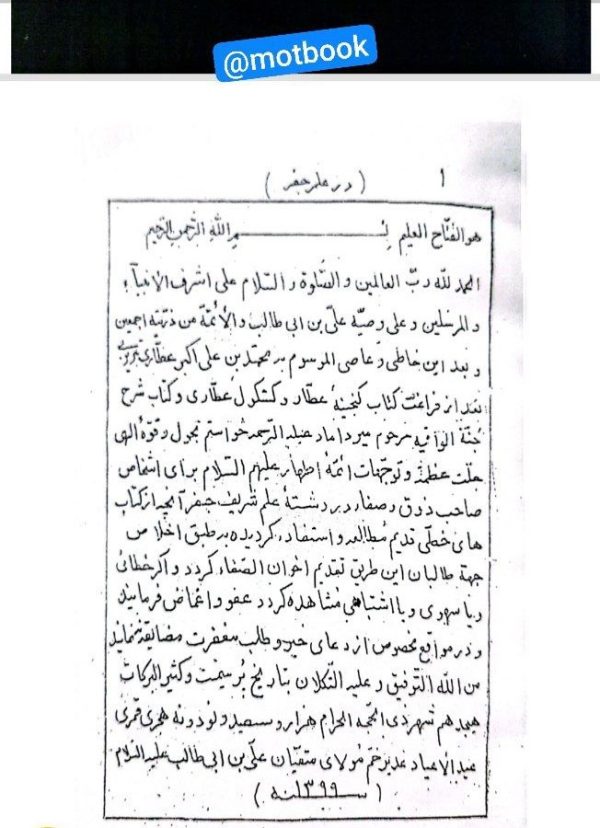 @motbook
۱ ( در علم جفر )
هو الفتّاح العلیم بِسْمِ اللهِ الرَّحمنِ الرَّحیم
الحمد للّه ربّ العالمین و الصّلوة و السّلام علی اشرف الانبیآء
و المرسلین و علی وصیّه علیّ بن ابی طالب و الأئمّة من ذرّیّته اجمعین
و بعد این خاطی و عاصی الموسوم به محمّد بن علی اکبر عطّاری تبریزی
بعد از فراغت کتاب گنجینهٔ عطّار و کشکول عطّاری و کتاب شرح
جنّة الواقیه مرحوم میرداماد علیه الرحمه خواستم بحول و قوّه الهی
جلّت عظمته و توجّهات ائمّه اطهار علیهم السّلام برای اشخاص
صاحب ذوق و صفا در رشتهٔ علم شریف جفر آنچه از کتاب
های خطّی قدیم مطالعه و استفاده گردیده بر طبق اخلاص
جهة طالبان این طریق تقدیم اخوان الصّفاء گردد و اگر خطائی
و یا سهوی و یا اشتباهی مشاهده گردد عفو و اغماض فرمایند
و در مواقع مخصوص از دعای خیر و طلب مغفرت مضایقه ننمایند
من الله التّوفیق و علیه التّکلان بتاریخ پُر میمنت و کثیر البرکات
هیجدهم شهر ذی الحجّة الحرام هزار و سیصد و نود و نه هجری قمری
عید الاعیاد غدیر خم مولای متقیان علیّ بن ابی طالب علیه السّلام
( سنه ۱۳۹۹ )